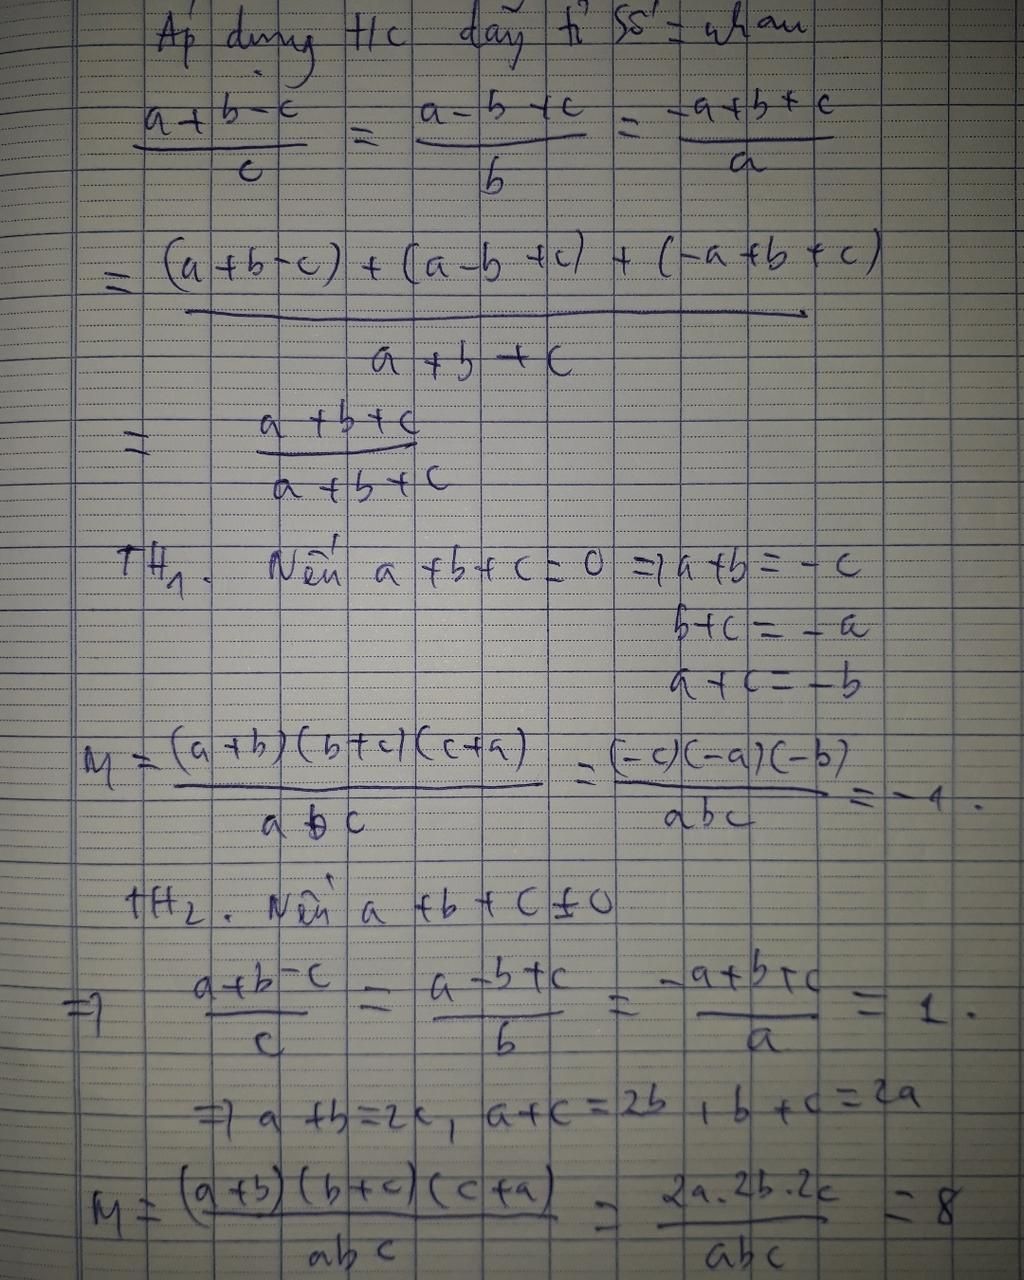 Áp dụng t/c dãy tỉ số = nhau
(a+b-c)/c = (a-b+c)/b = (-a+b+c)/a
= ((a+b-c) + (a-b+c) + (-a+b+c))/(a+b+c)
= (a+b+c)/(a+b+c)
TH1. Nếu a+b+c = 0 => a+b = -c
b+c = -a
a+c = -b
M = ((a+b)(b+c)(c+a))/(abc) = ((-c)(-a)(-b))/(abc) = -1.
TH2. Nếu a+b+c ≠ 0
=> (a+b-c)/c = (a-b+c)/b = (-a+b+c)/a = 1.
=> a+b=2c, a+c=2b, b+c=2a
M = ((a+b)(b+c)(c+a))/(abc) = (2a.2b.2c)/(abc) = 8